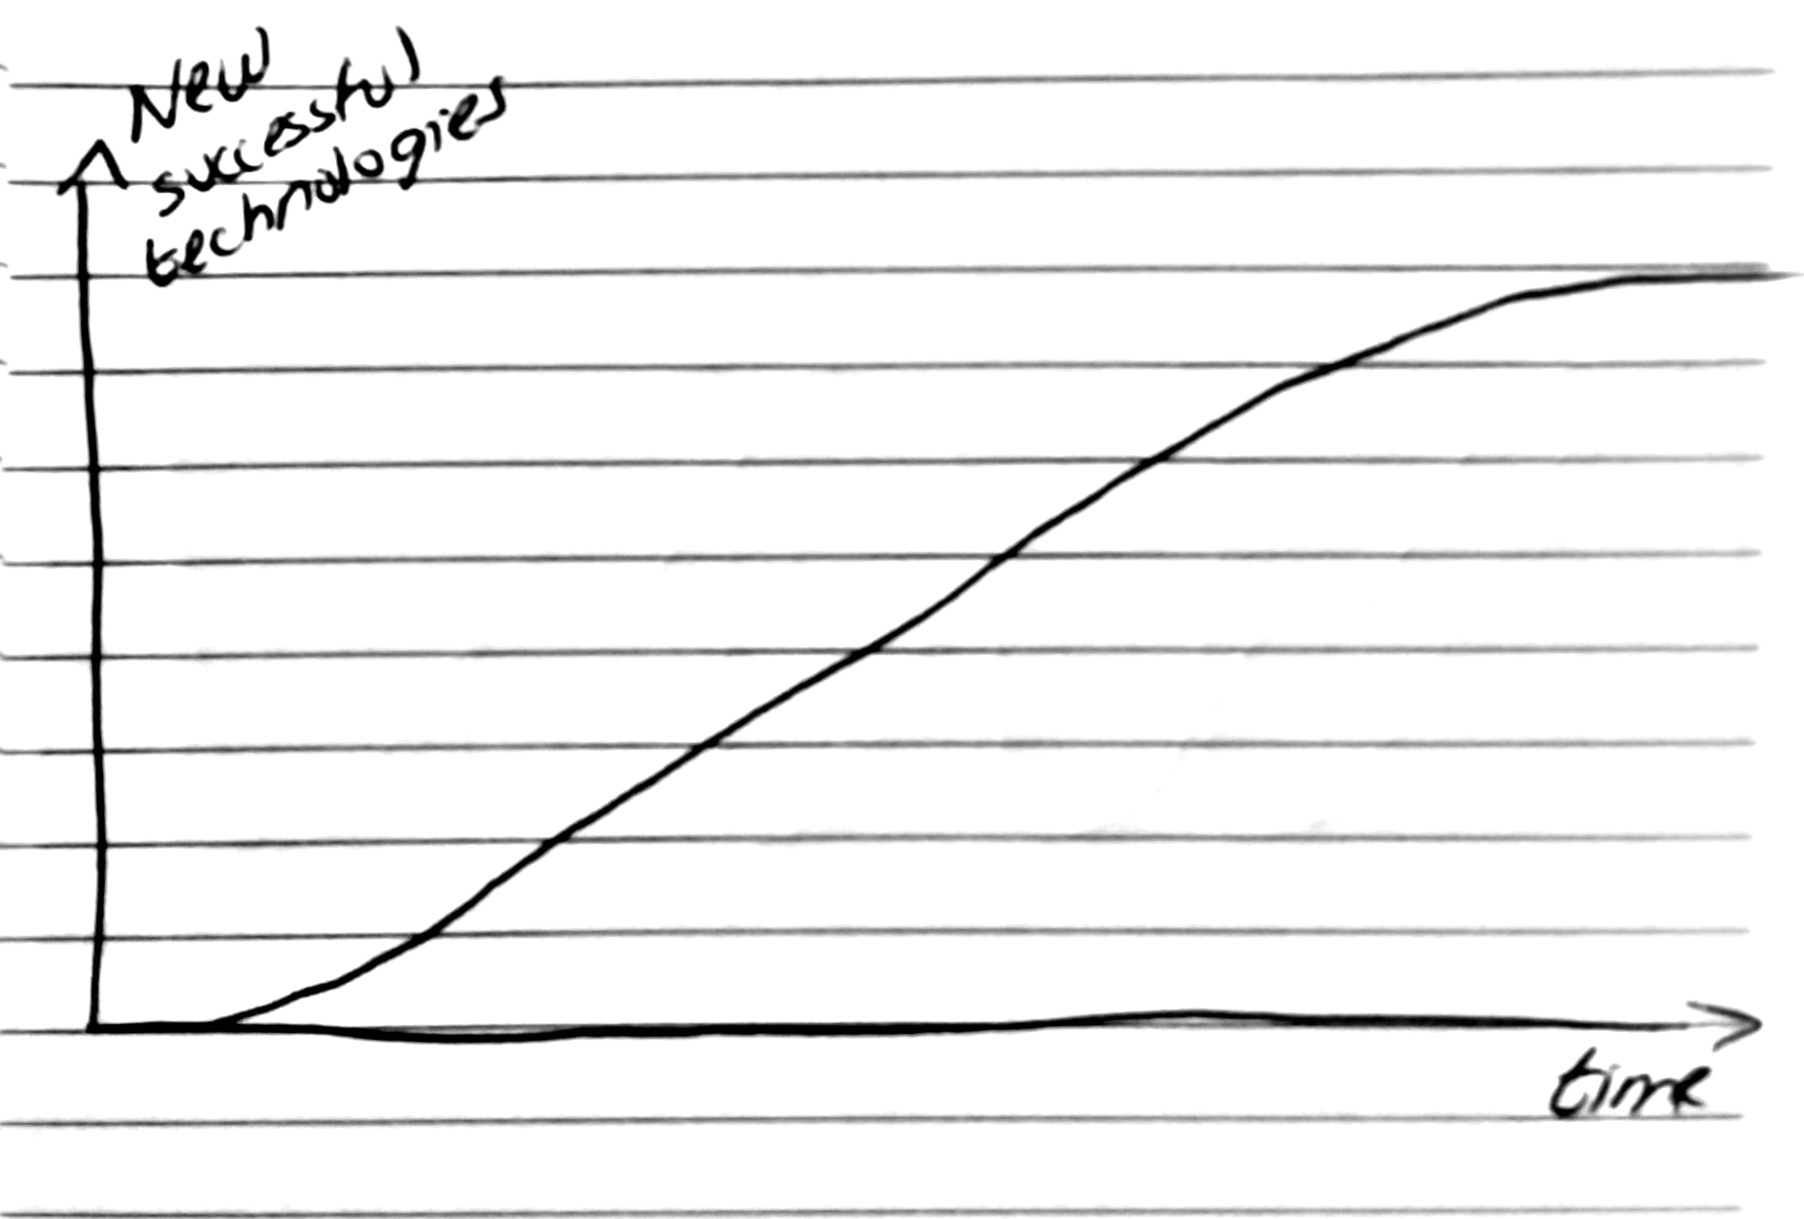 New
successful
technologies
time